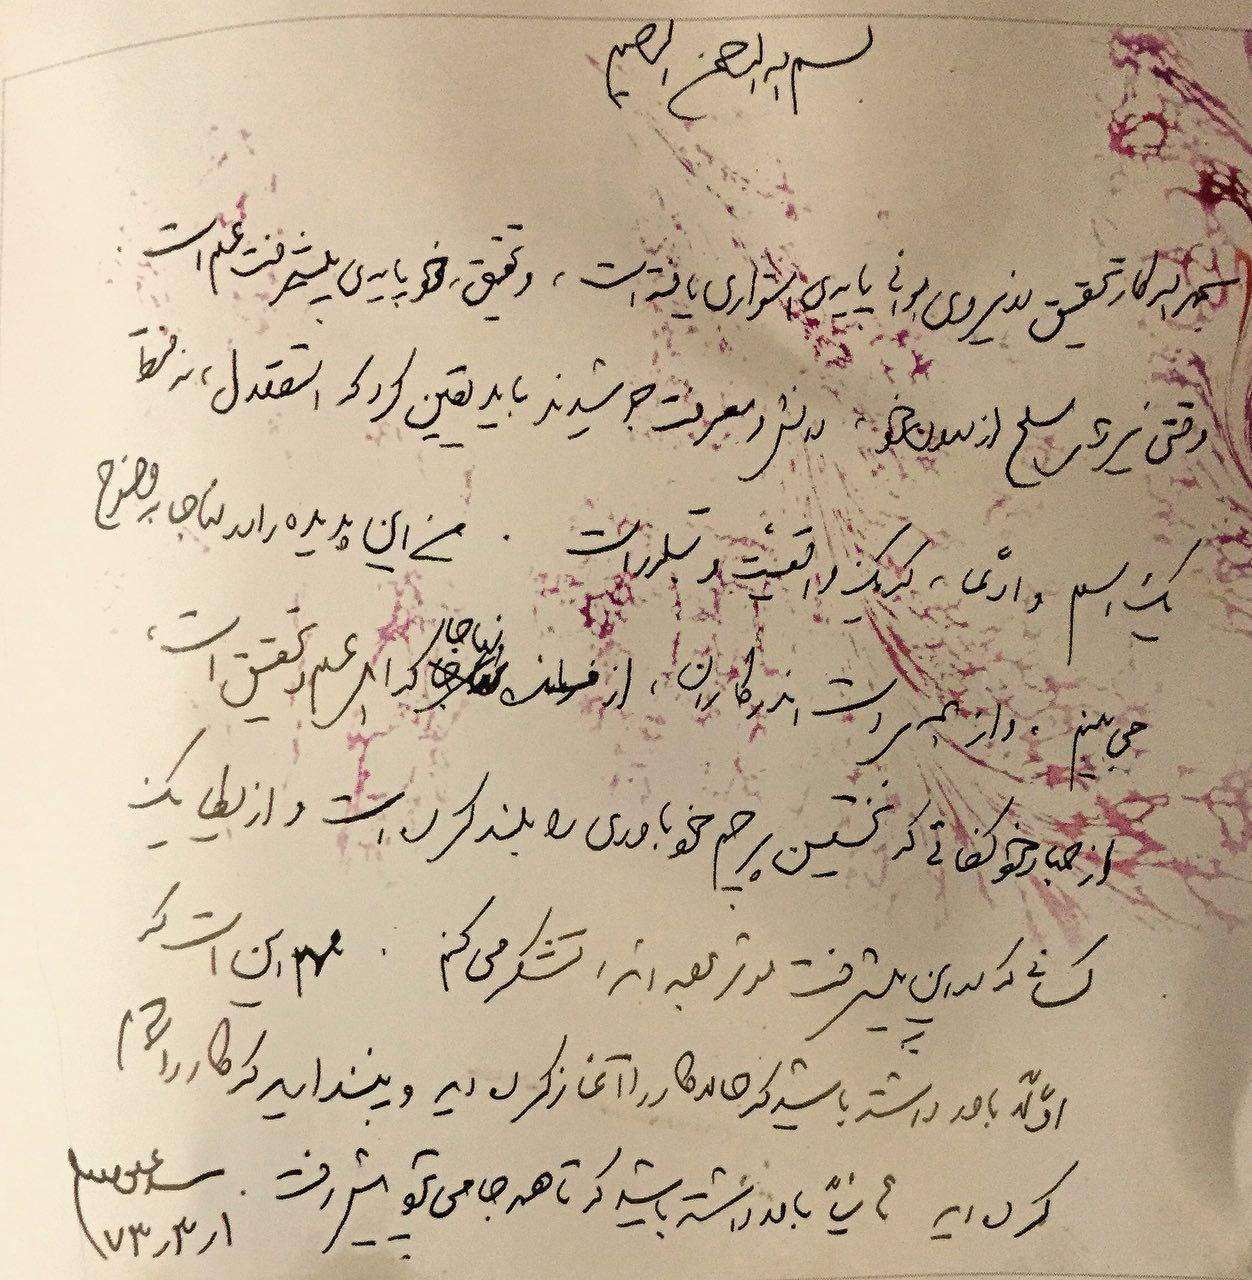 بسم الله الرحمن الرحیم
بحمدالله کار تحقیق در نیروی هوائی پایه‌ی استواری یافته است، و تحقیق، خود پایه‌ی پیشرفت علم است
وقتی نیروی مسلح از درون خود، دانش و معرفت جوشیدند باید یقین کرد که استقلال، نه فقط
یک اسم و ادّعا، که یک واقعیّت و تبلور است. من این پدیده را در اینجا به وضوح
می‌بینم. و از همه‌ی دست اندرکاران، از فرمانده نهاجا که اهل علم و تحقیق است،
از جهاد خودکفائی که نخستین پرچم خودباوری را بلند کرده است و از یکایک
کسانی که در این پیشرفت مؤثر بوده‌اند، تشکر می‌کنم. مهم این است که
اوّلاً باور داشته باشید که حالا کار را آغاز کرده‌اید و نپندارید که کار را تمام
کرده‌اید ثانیاً باور داشته باشید که تا همه جا می‌توان پیش رفت.
۷۳/۳/۱